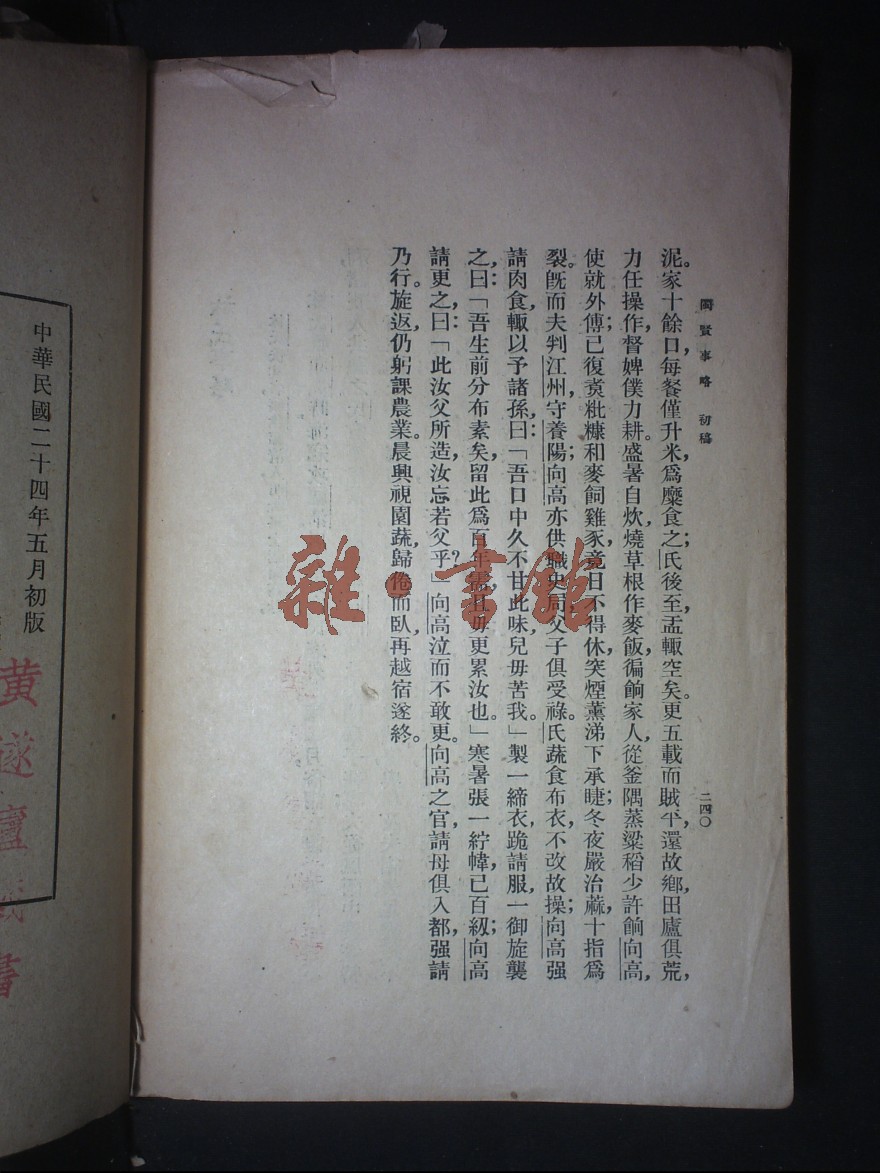 閩賢事略 初稿
二四〇
泥。家十餘口,每餐僅升米爲糜食之;氏後至,盂輙空矣。更五載而賊平,還故鄉,田廬俱荒,
力任操作,督婢僕力耕。盛暑自炊,燒草根作麥飯,徧餉家人,從釜隅蒸粱稻少許餉向高,
使就外傅;已復賷粃糠和麥飼雞豕,竟日不得休,突煙薰涕下承睫;冬夜嚴治蔴,十指爲
裂。旣而夫判江州,守養陽;向高亦供職史局,父子俱受祿。氏蔬食布衣,不改故操;向高强
請肉食,輙以予諸孫,曰:「吾口中久不甘此味,兒毋苦我。」製一締衣,跪請服,一御旋襲
之,曰:「吾生前分布素矣,留此爲百年需,且毋更累汝也。」寒暑張一紵幃,已百級;向高
請更之,曰:「此汝父所造,汝忘若父乎?」向高泣而不敢更。向高之官,請母俱入都,强請
乃行。旋返,仍躬課農業。晨興視園蔬,歸倦而臥,再越宿遂終。
雜·書館
中華民國二十四年五月初版
黄
書